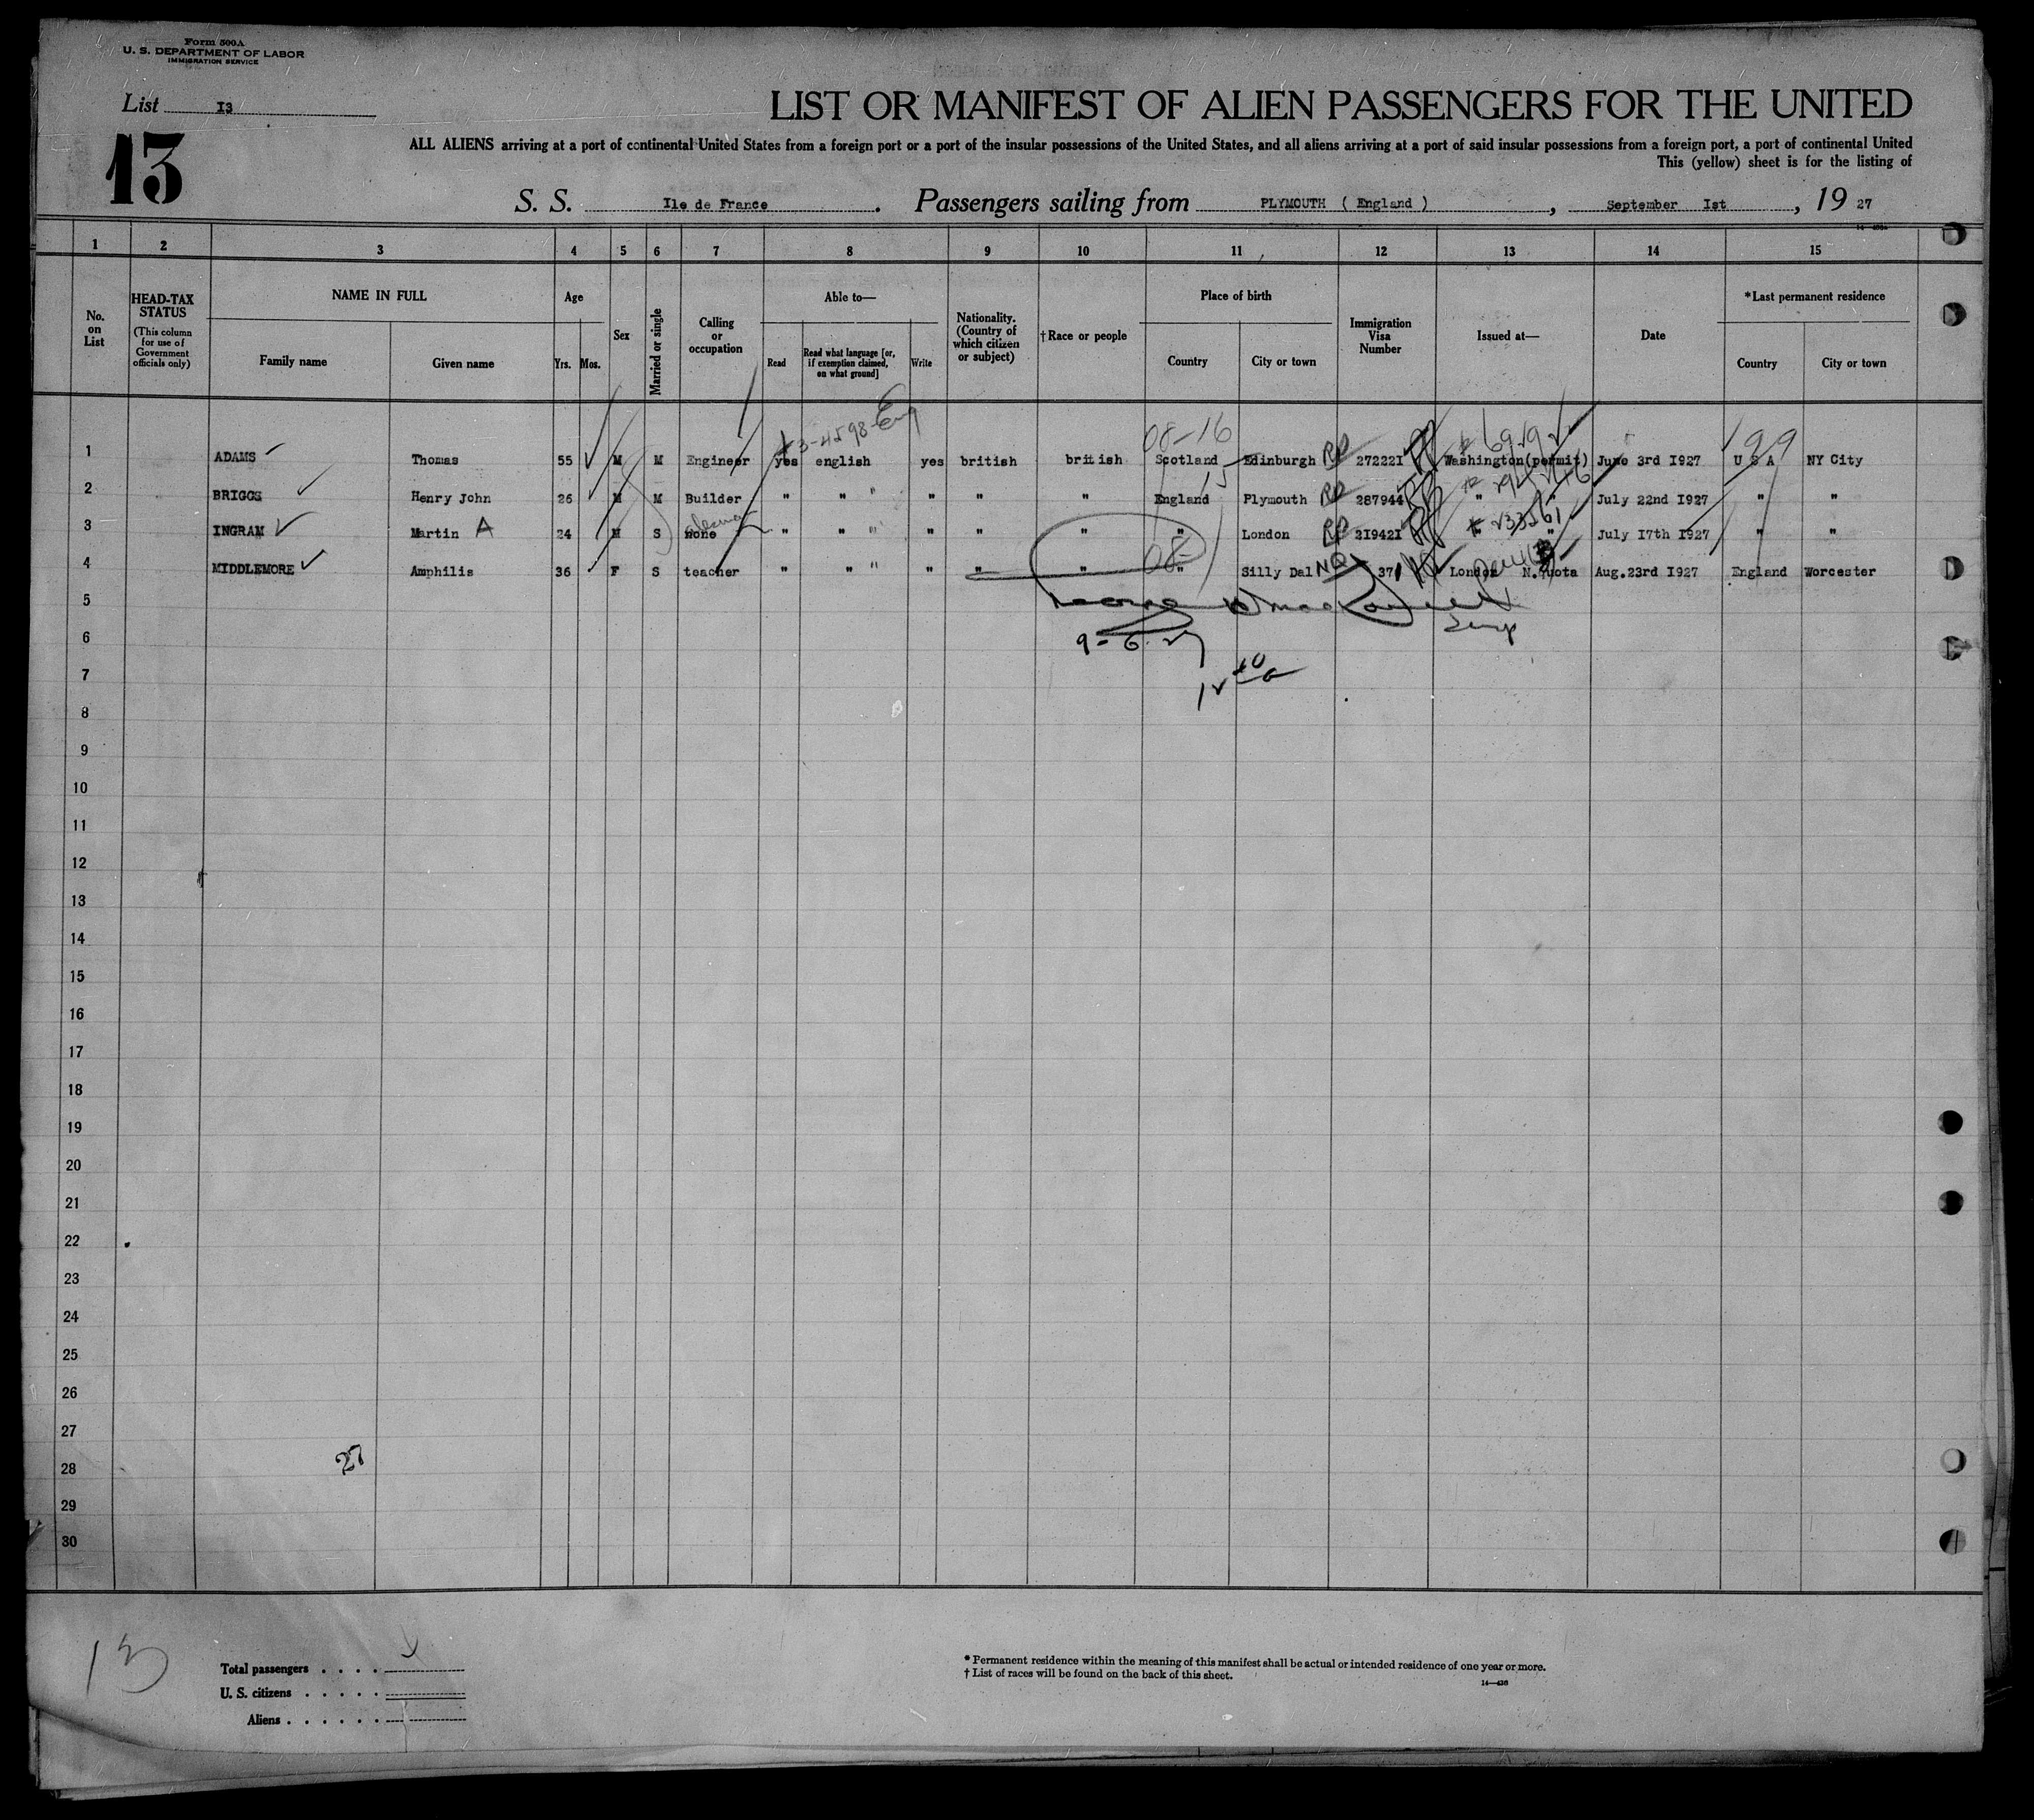 Form 500A
U. S. DEPARTMENT OF LABOR
IMMIGRATION SERVICE
List I3
13
LIST OR MANIFEST OF ALIEN PASSENGERS FOR THE UNITED
ALL ALIENS arriving at a port of continental United States from a foreign port or a port of the insular possessions of the United States, and all aliens arriving at a port of said insular possessions from a foreign port, a port of continental United
This (yellow) sheet is for the listing of
S. S. Ile de France. Passengers sailing from PLYMOUTH ( England ), September Ist, 19 27
1 2 3 4 5 6 7 8 9 10 11 12 13 14 15
No. on List
HEAD-TAX STATUS (This column for use of Government officials only)
NAME IN FULL Family name Given name
Age Yrs. Mos.
Sex
Married or single
Calling or occupation
Able to— Read Read what language [or, if exemption claimed, on what ground] Write
Nationality. (Country of which citizen or subject)
†Race or people
Place of birth Country City or town
Immigration Visa Number
Issued at—
Date
*Last permanent residence Country City or town
3-4598-Eng 08-16 199
1 ADAMS Thomas 55 M M Engineer yes english yes british british Scotland Edinburgh RP 272221 Washington(permit) June 3rd I927 U S A NY City
2 BRIGGS Henry John 26 M M Builder " " " " " " England Plymouth RP 287944 " " July 22nd I927 " "
3 INGRAM Martin A 24 M S none " " " " " " " London RP 219421 " " July 17th I927 " "
08-
4 MIDDLEMORE Amphilis 36 F S teacher " " " " " " " Silly Dal NQ 371 London N.Quota Aug.23rd I927 England Worcester
5
6
9-6-27
7
8
9
10
11
12
13
14
15
16
17
18
19
20
21
22
23
24
25
26
27
28 27
29
30
13
Total passengers
U. S. citizens
Aliens
* Permanent residence within the meaning of this manifest shall be actual or intended residence of one year or more.
† List of races will be found on the back of this sheet.
14—430